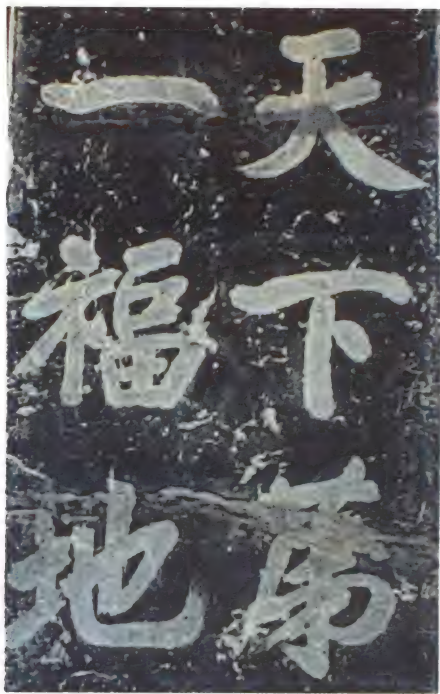 天下第
一福地